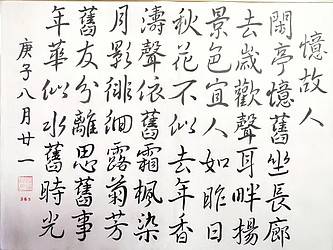 憶故人
閑亭憶舊坐長廊
去歲歡聲耳畔楊
景色宜人如昨日
秋花不似去年香
濤聲依舊霜楓染
月影徘徊露菊芳
舊友分離思舊事
年華似水舊時光
庚子八月廿一